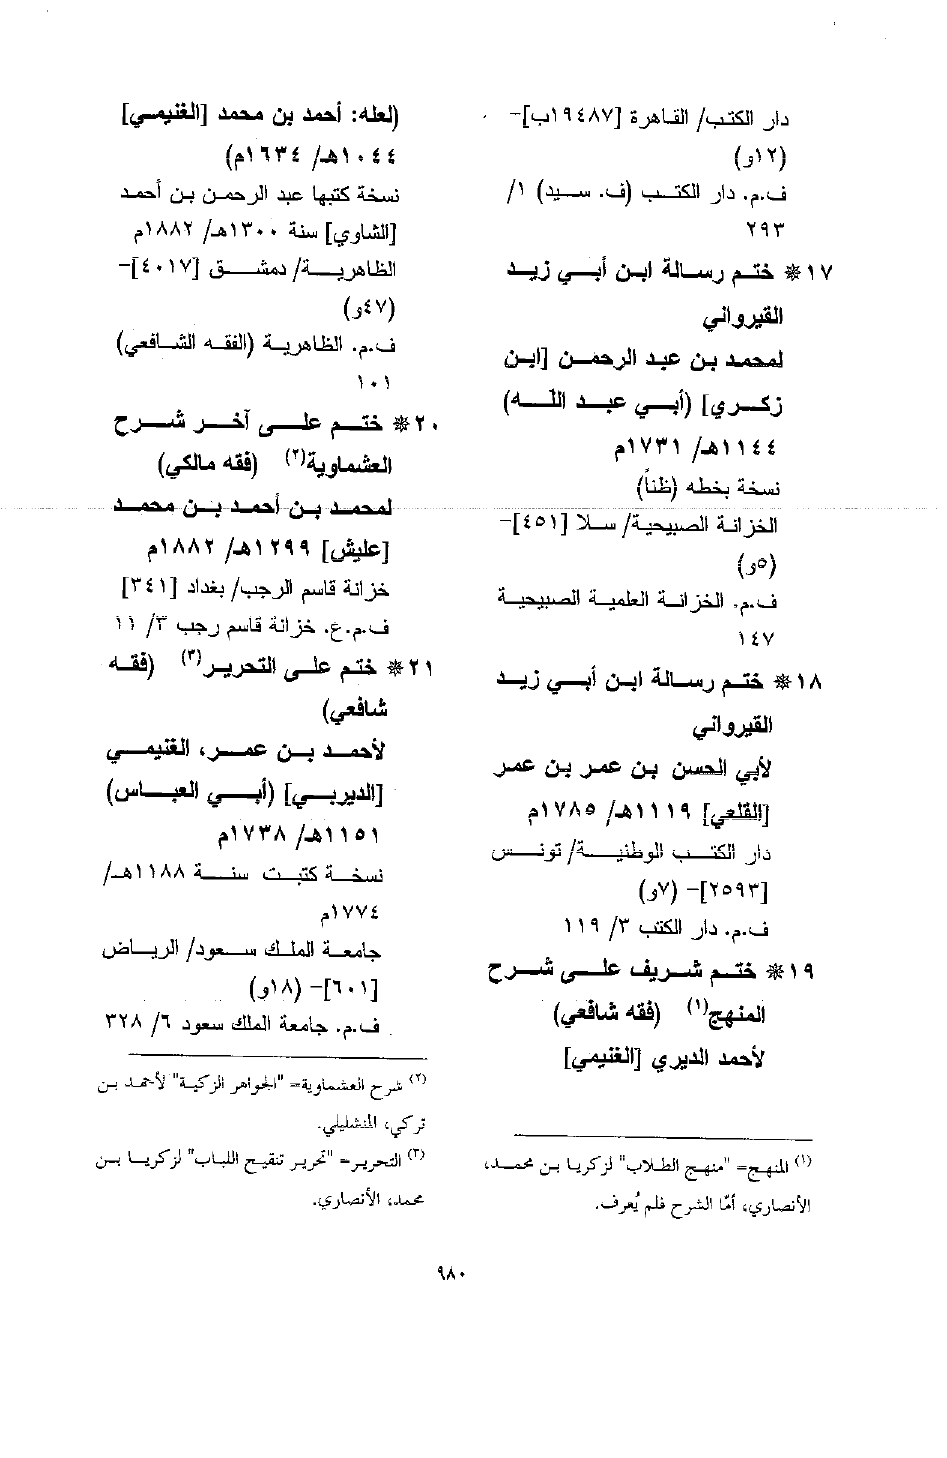 دار الكتب/ القاهرة [١٩٤٨٧ب]-
(١٢و)
ف.م. دار الكتب (ف. سيد) ١/
٢٩٣
١٧* ختم رسالة ابن أبي زيد
القيرواني
لمحمد بن عبد الرحمن [ابن
زكري] (أبي عبد الله)
١١٤٤هـ/ ١٧٣١م
نسخة بخطه (ظناً)
الخزانة الصبيحية/ سلا [٤٥١]-
(٥و)
ف.م. الخزانة العلمية الصبيحية
١٤٧
١٨* ختم رسالة ابن أبي زيد
القيرواني
لأبي الحسن بن عمر بن عمر
[القلعي] ١١١٩هـ/ ١٧٨٥م
دار الكتب الوطنية/ تونس
[٢٥٩٣]- (٧و)
ف.م. دار الكتب ٣/ ١١٩
١٩* ختم شريف على شرح
المنهج(١) (فقه شافعي)
لأحمد الديري [الغنيمي]
(١) المنهج= "منهج الطلاب" لزكريا بن محمد،
الأنصاري، أمّا الشرح فلم يُعرف.
(لعله: أحمد بن محمد [الغنيمي]
١٠٤٤هـ/ ١٦٣٤م)
نسخة كتبها عبد الرحمن بن أحمد
[الشاوي] سنة ١٣٠٠هـ/ ١٨٨٢م
الظاهرية/ دمشق [٤٠١٧]-
(٤٧و)
ف.م. الظاهرية (الفقه الشافعي)
١٠١
٢٠* ختم على آخر شرح
العشماوية(٢) (فقه مالكي)
لمحمد بن أحمد بن محمد
[عليش] ١٢٩٩هـ/ ١٨٨٢م
خزانة قاسم الرجب/ بغداد [٣٤١]
ف.م.ع. خزانة قاسم رجب ٣/ ١١
٢١* ختم على التحرير(٣) (فقه
شافعي)
لأحمد بن عمر، الغنيمي
[الديربي] (أبي العباس)
١١٥١هـ/ ١٧٣٨م
نسخة كتبت سنة ١١٨٨هـ/
١٧٧٤م
جامعة الملك سعود/ الرياض
[٦٠١]- (١٨و)
ف.م. جامعة الملك سعود ٦/ ٣٢٨
(٢) شرح العشماوية= "الجواهر الزكية" لأحمد بن
تركي، المنشليلي.
(٣) التحرير= "تحرير تنقيح اللباب" لزكريا بن
محمد، الأنصاري.
٩٨٠